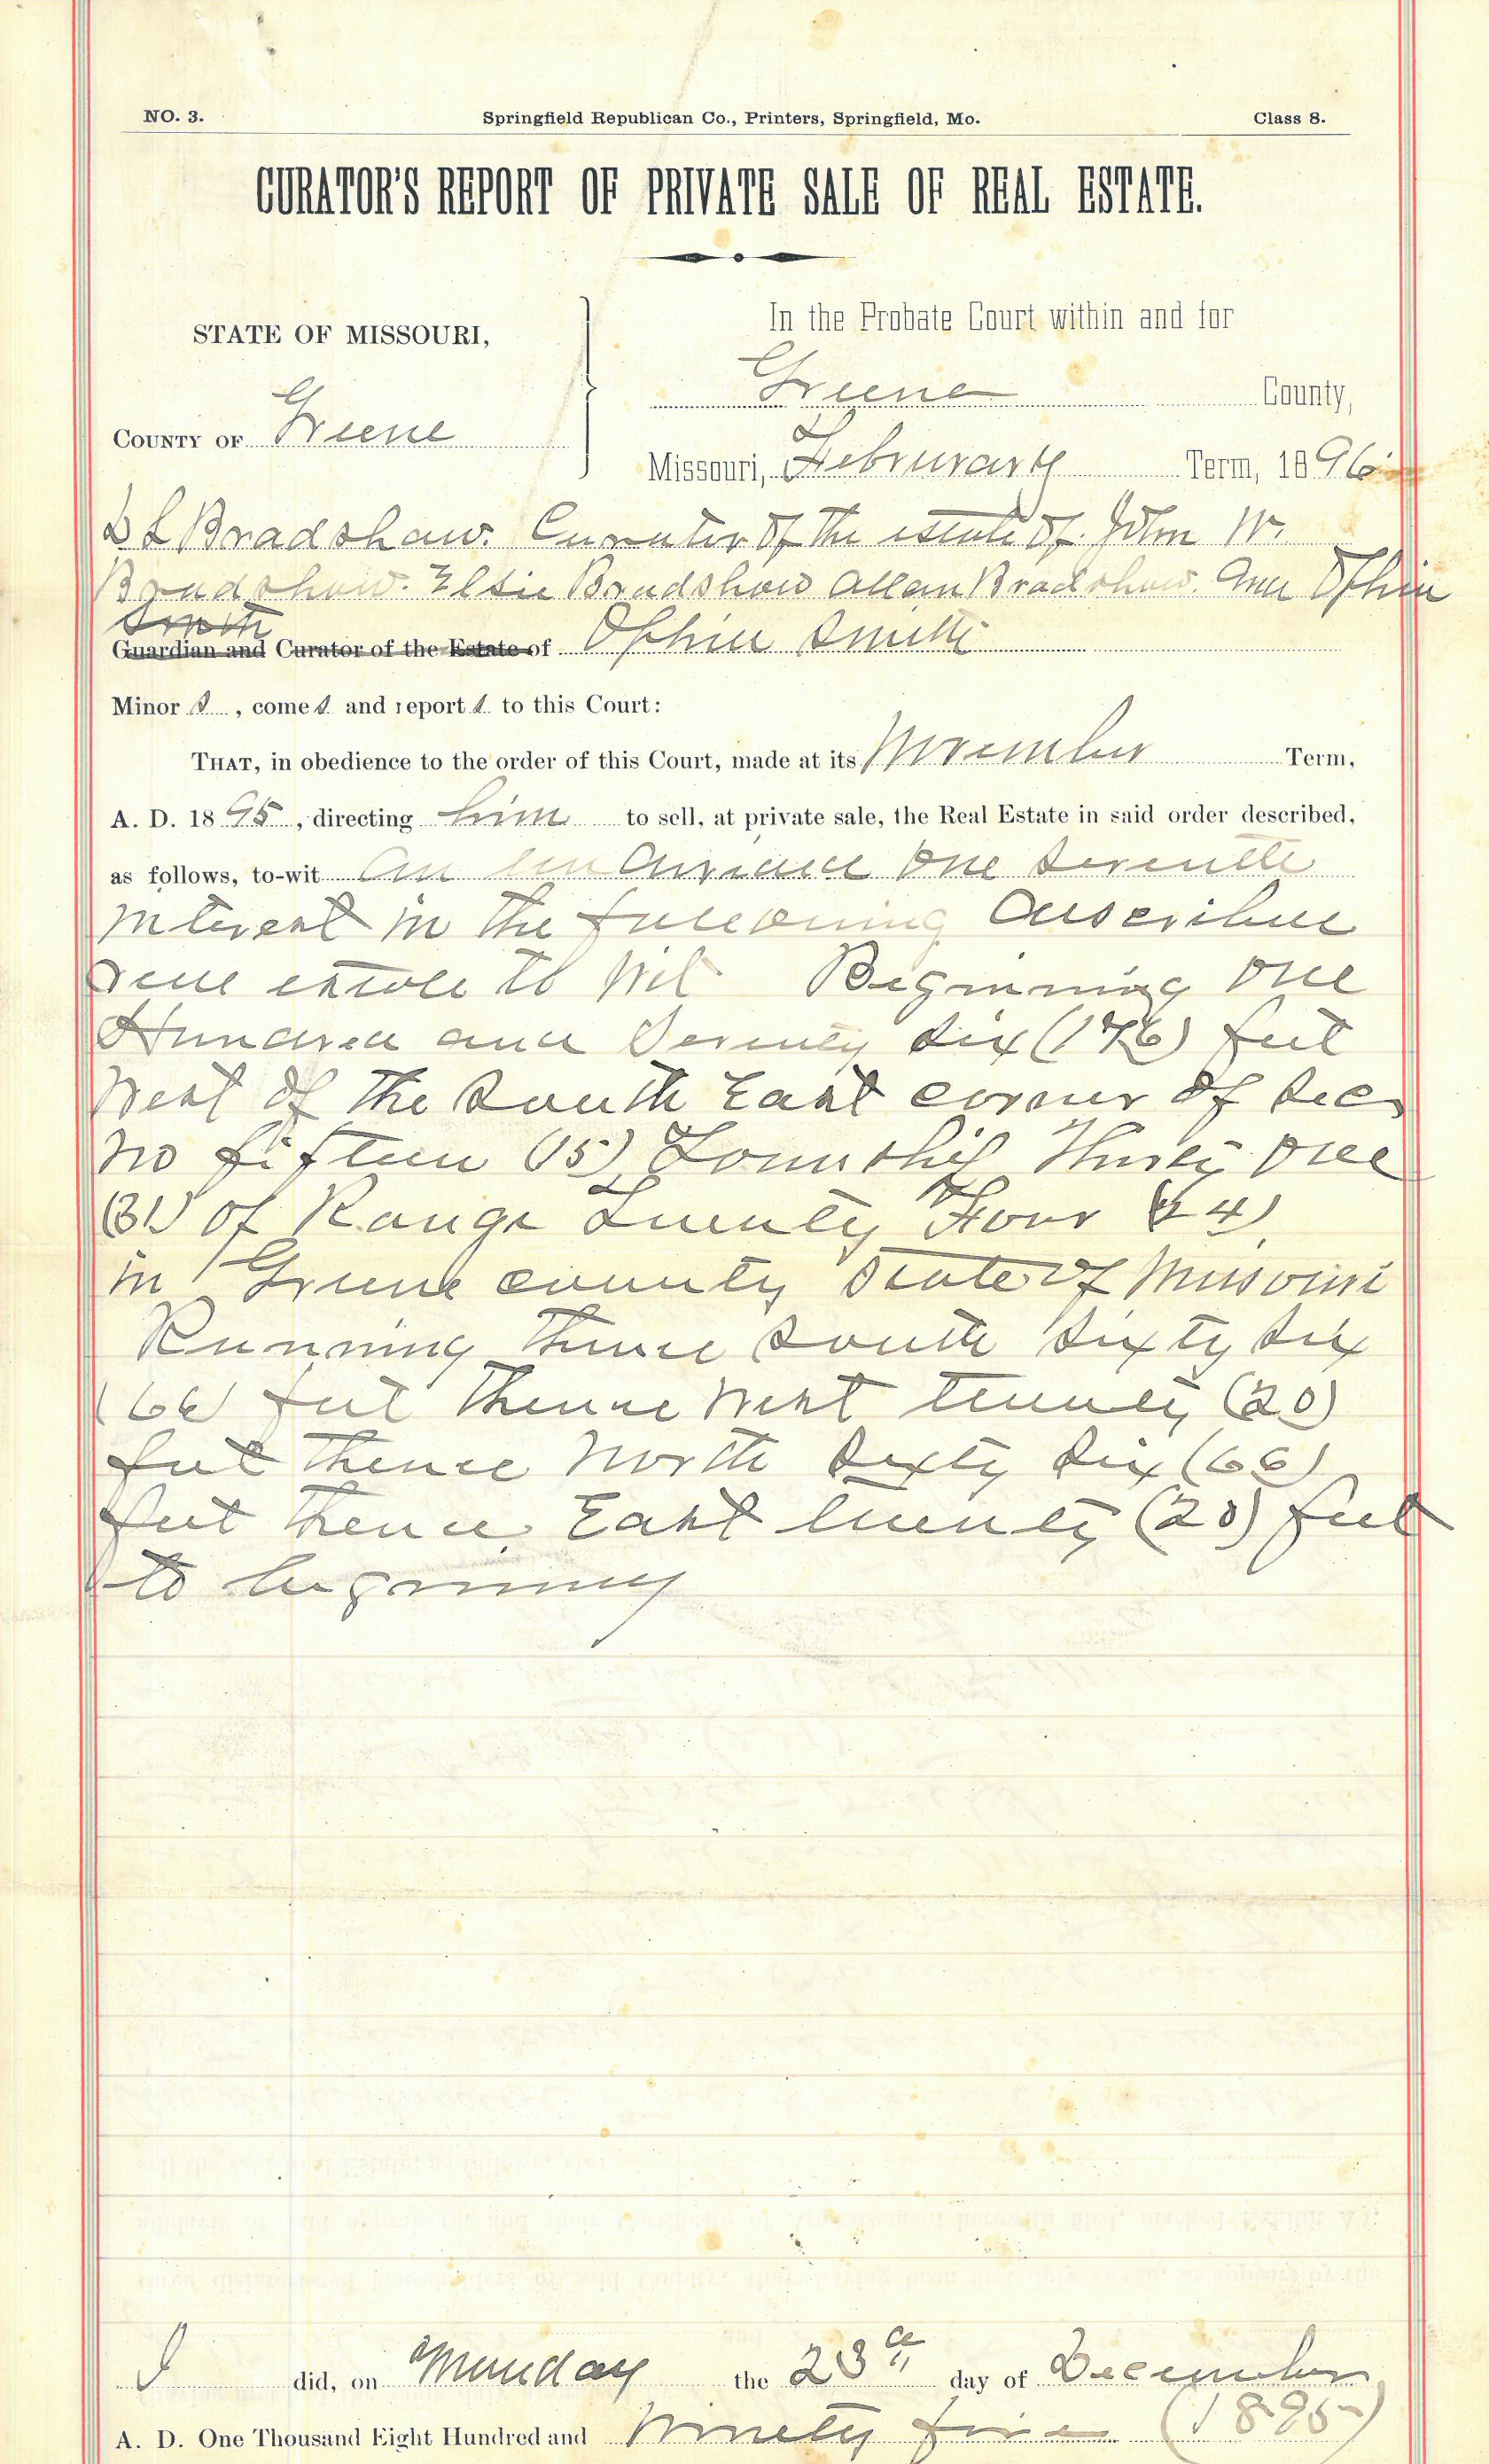 NO. 3. Springfield Republican Co., Printers, Springfield, Mo. Class 8.
CURATOR'S REPORT OF PRIVATE SALE OF REAL ESTATE.
In the Probate Court within and for
STATE OF MISSOURI,
Greene County,
COUNTY OF Greene
Missouri, Februrary Term, 1896
D L Bradshaw. Curator of the estate of John W.
Bradshaw. Elsie Bradshaw Allan Bradshaw. and Ophia
Smith
Guardian and Curator of the Estate of Ophia Smith
Minor s, comes and reports to this Court:
THAT, in obedience to the order of this Court, made at its November Term,
A. D. 1895, directing him to sell, at private sale, the Real Estate in said order described,
as follows, to-wit an undivided one seventh
interest in the following described
real estate to wit Beginning one
Hundred and Seventy six (176) feet
West of the South East corner of Sec
No fifteen (15) Township Thirty one
(31) of Range Twenty Four (24)
in Greene county State of Missouri
Running thence South Sixty Six
(66) feet thence West twenty (20)
feet thence North Sixty Six (66)
feet thence East twenty (20) feet
to beginning
I did, on Munday the 23d day of December
A. D. One Thousand Eight Hundred and Ninety five (1895)